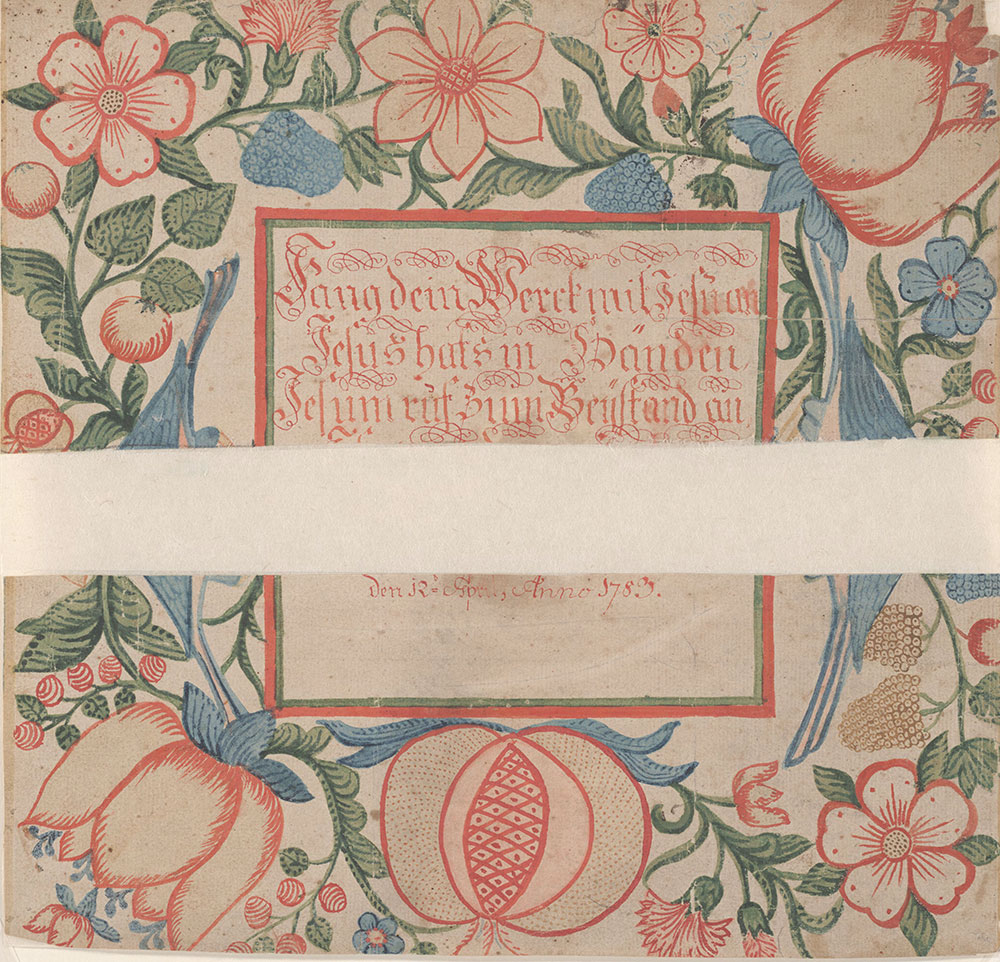 Fang dein Werck mit Jesu an
Jesus hats in Händen
Jesum ruf zum Beÿstand an
den 12= April, Anno 1783.